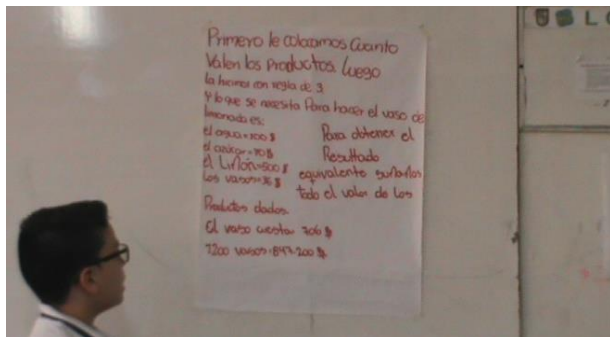 Primero le colocamos Cuanto
Valen los Productos. Luego
la hicimos con regla de 3
Y lo que se necesita Para hacer el vaso de
limonada es:
el agua=100 $
el azúcar=70 $
el Limón=500 $
Los vasos=36 $
Para obtener el
Resultado
equivalente
todo el valor de los
Productos dados.
El vaso cuesta 706 $
1200 vasos=847.200 $